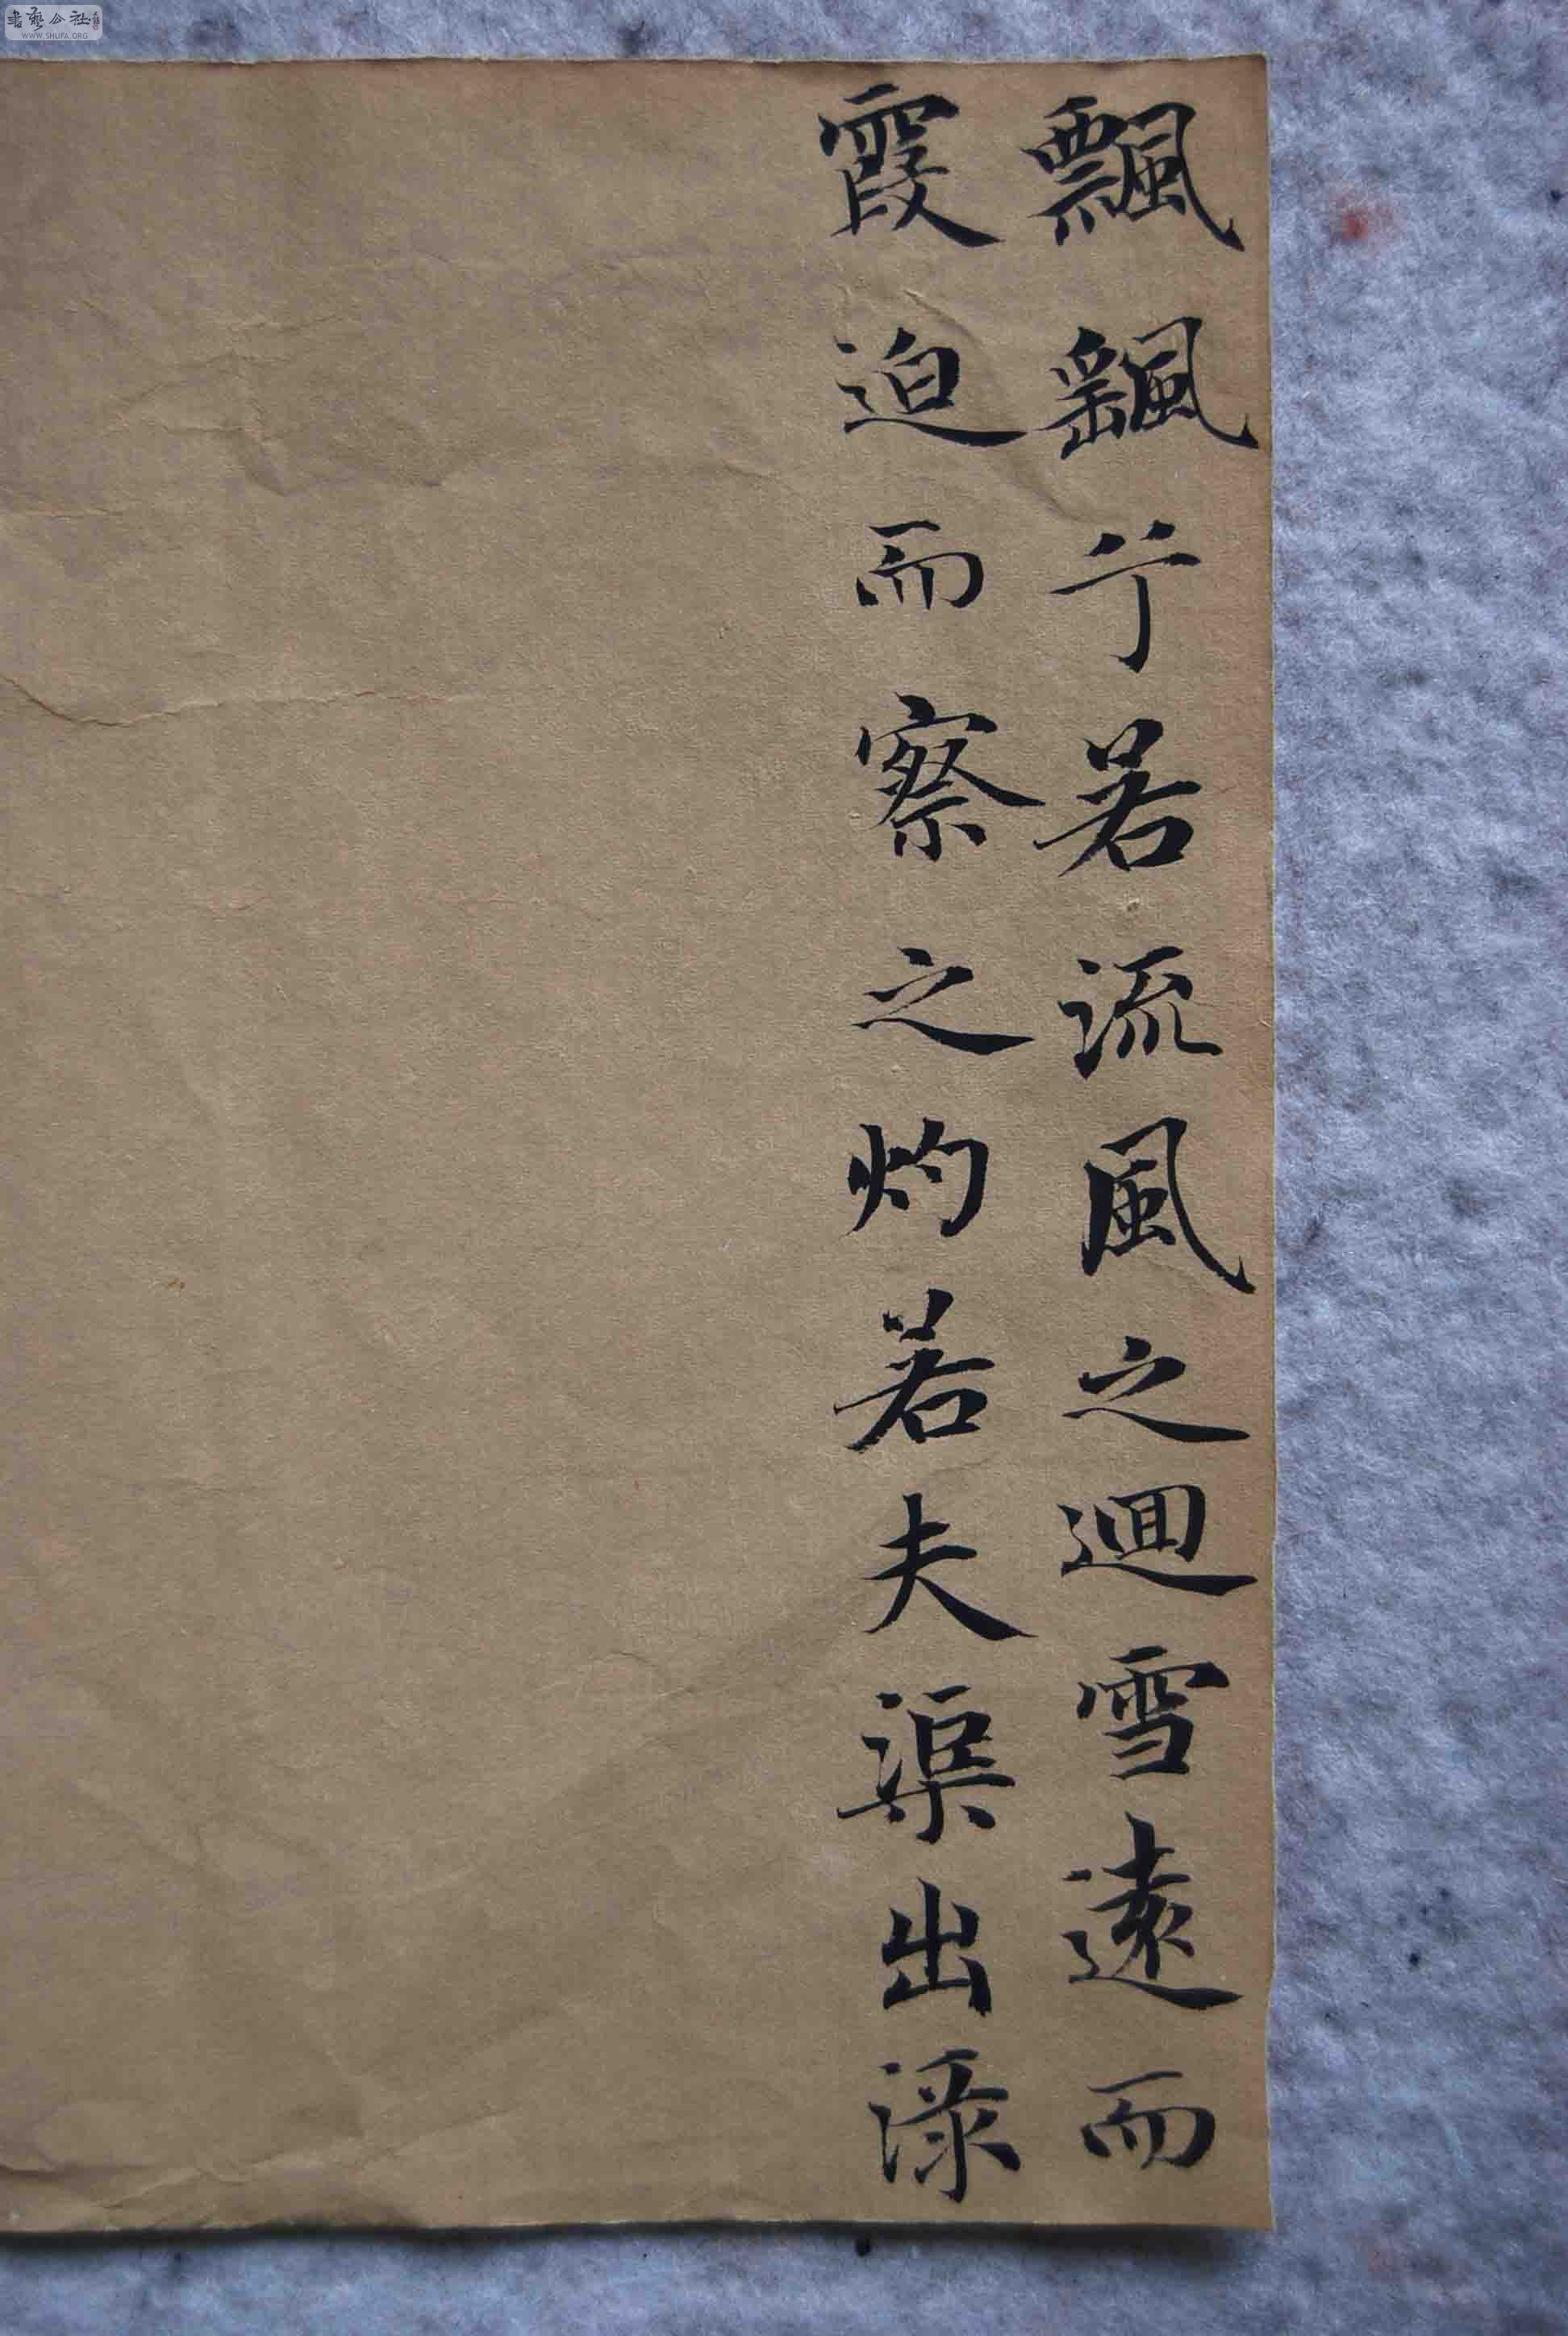 飄颻兮若流風之迴雪遠而
霞迫而察之灼若夫渠出渌
書藝公社
WWW.SHUFA.ORG